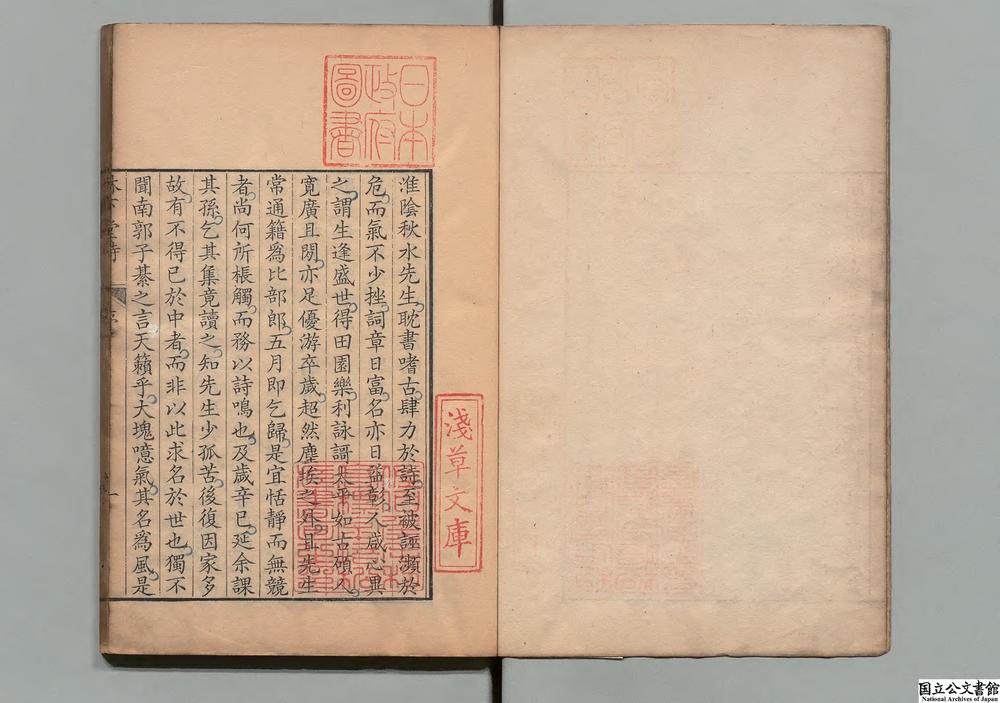 日本
政府
圖書
淺草文庫
淮陰秋水先生耽書嗜古肆力於詩至被誣瀕於
危而氣不少挫詞章日富名亦日益彰人咸心異
之謂生逢盛世得田園樂利詠謌太平如古頎人
寬廣且閎亦足優游卒歲超然塵埃之外且先生
常通籍爲比部郎五月即乞歸是宜恬靜而無競
者尚何所棖觸而務以詩鳴也及歲辛巳延余課
其孫乞其集竟讀之知先生少孤苦後復因家多
故有不得已於中者而非以此求名於世也獨不
聞南郭子綦之言天籟乎大塊噫氣其名爲風是
堂詩
一
国立公文書館
National Archives of Japan